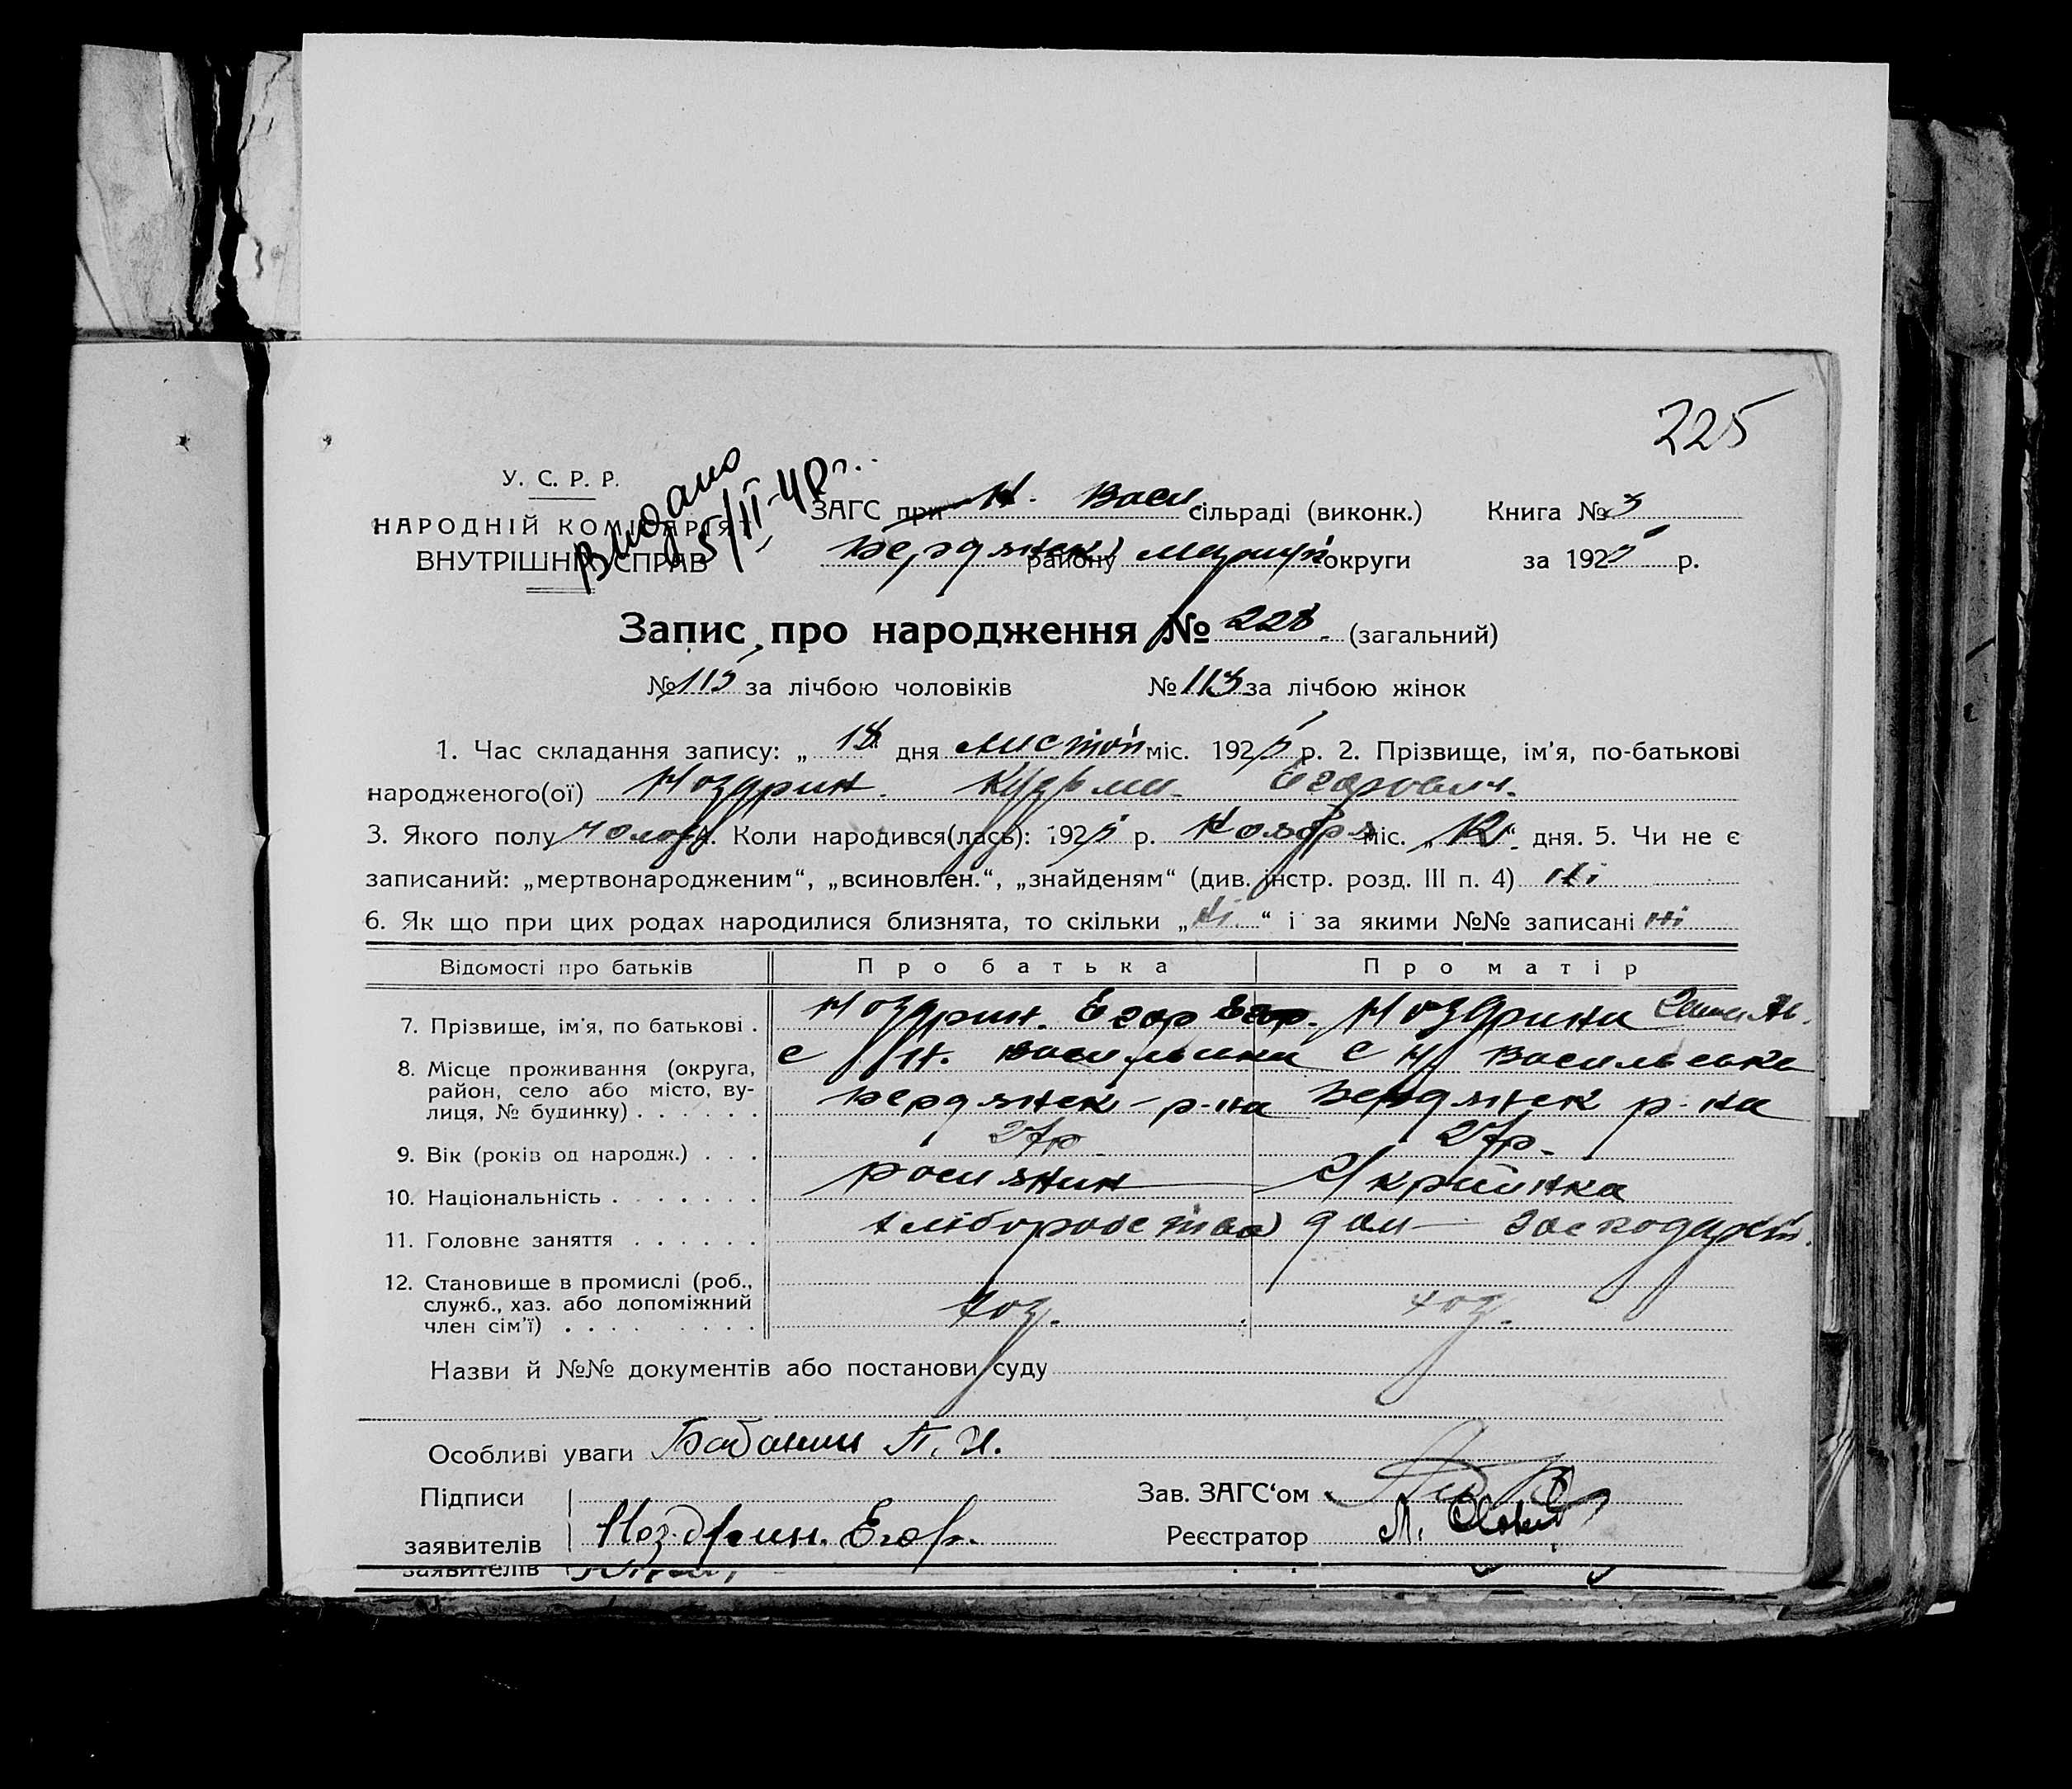 225
Видано
5/II-40 г.
У. С. Р. Р.
НАРОДНІЙ КОМІСАРІЯТ
ВНУТРІШНІХ СПРАВ
ЗАГС при Н. Васи. сільраді (виконк.) Книга № 3
Бердянск району Маріуп округи за 1925 р.
Запис про народження № 228 (загальний)
№ 115 за лічбою чоловіків № 113 за лічбою жінок
1. Час складання запису: „ 18 дня листоп міс. 1925 р. 2. Прізвище, ім'я, по-батькові
народженого(ої) Ноздрин Кузьма Егарович.
3. Якого полу чолов 4. Коли народився(лась): 1925 р. Ноября міс. „ 12 “ дня. 5. Чи не є
записаний: „мертвонародженим“, „всиновлен.“, „знайденям“ (див. інстр. розд. III п. 4) ні
6. Як що при цих родах народилися близнята, то скільки „ Ні “ і за якими №№ записані ні
Відомості про батьків Про батька Про матір
7. Прізвище, ім'я, по батькові . Ноздрин. Егор Егор. Ноздрина
8. Місце проживання (округа, с Н. Васильевка с Н Васильевка
район, село або місто, ву-
лиця, № будинку) . . . . . . Бердянск р-на Бердянск р-на
9. Вік (років од народж.) . . . 27р 27р.
10. Національність . . . . . . . росиянин Украйинка
11. Головне заняття . . . . . . хліборобство дом господарст.
12. Становище в промислі (роб.,
служб., хаз. або допоміжний
член сім'ї) . . . . . . . . . хоз. хоз.
Назви й №№ документів або постанови суду
Особливі уваги Бабанин П. И.
Підписи Зав. ЗАГС‘ом
заявителів Ноздрин. Егор. Реєстратор М.
заявителів